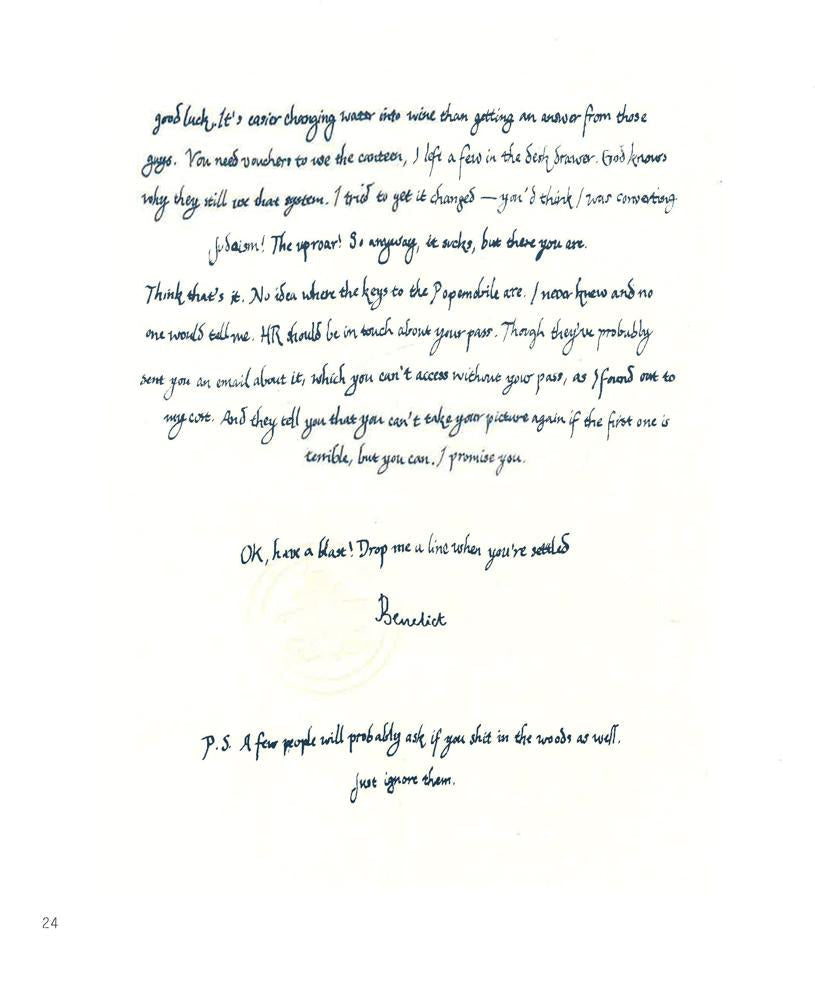 good luck. It's easier changing water into wine than getting an answer from those
guys. You need vouchers to use the canteen, I left a few in the desk drawer. God knows
why they still use that system. I tried to get it changed — you'd think I was converting
Judaism! The uproar! So anyway, it sucks, but there you are.
Think that's it. No idea where the keys to the Popemobile are. I never knew and no
one would tell me. HR should be in touch about your pass. Though they've probably
sent you an email about it, which you can't access without your pass, as I found out to
my cost. And they tell you that you can't take your picture again if the first one is
terrible, but you can. I promise you.
OK, have a blast! Drop me a line when you're settled
Benedict
P.S. A few people will probably ask if you shit in the woods as well.
Just ignore them.
24